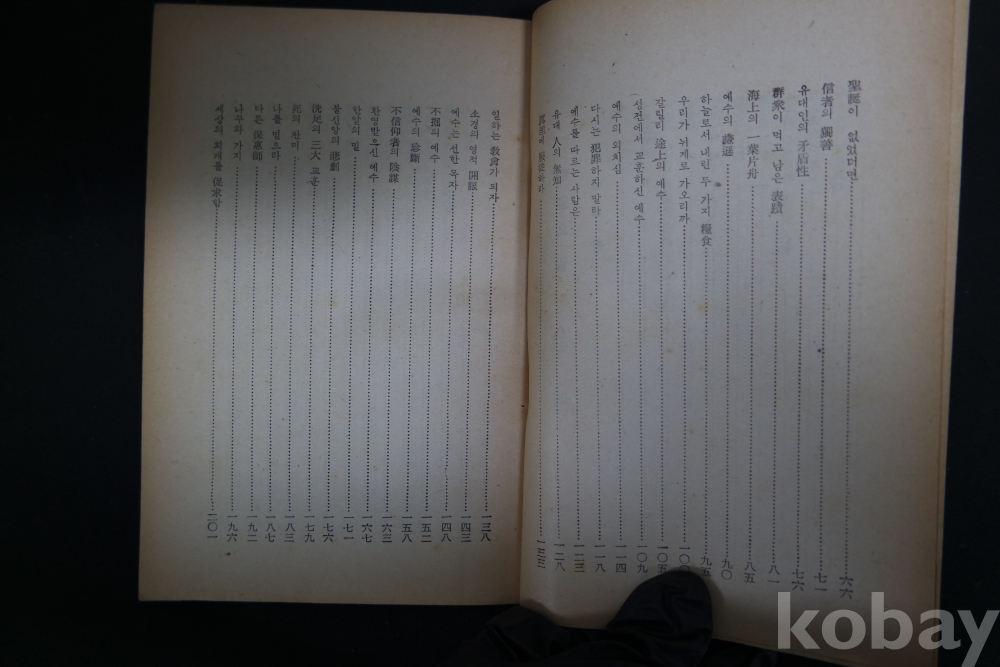 聖誕이 없었더면 …… 六六
信者의 獨善 …… 七一
유대인의 矛盾性 …… 七六
群衆이 먹고 남은 表蹟 …… 八一
海上의 一葉片舟 …… 八五
예수의 謙遜 …… 九〇
하늘로서 내린 두 가지 糧食 …… 九五
우리가 뉘게로 가오리까 …… 一〇〇
갈릴리 途上의 예수 …… 一〇五
성전에서 교훈하신 예수 …… 一〇九
예수의 외치심 …… 一一四
다시는 犯罪하지 말라 …… 一一八
예수를 따르는 사람은 …… 一二三
유대 人의 無知 …… 一二八
하라 …… 一三三
일하는 敎會가 되자 …… 一三八
소경의 영적 開眼 …… 一四三
예수는 선한 목자 …… 一四八
不屈의 예수 …… 一五二
예수의 診斷 …… 一五八
不信仰者의 陰謀 …… 一六三
환영받으신 예수 …… 一六七
한알의 밀 …… 一七一
불신앙의 悲劇 …… 一七六
洗足의 三大 교훈 …… 一七九
死의 찬미 …… 一八三
나를 믿으라 …… 一八七
다른 保惠師 …… 一九二
나무와 가지 …… 一九六
세상의 회개를 促求함 …… 二〇一
kobay